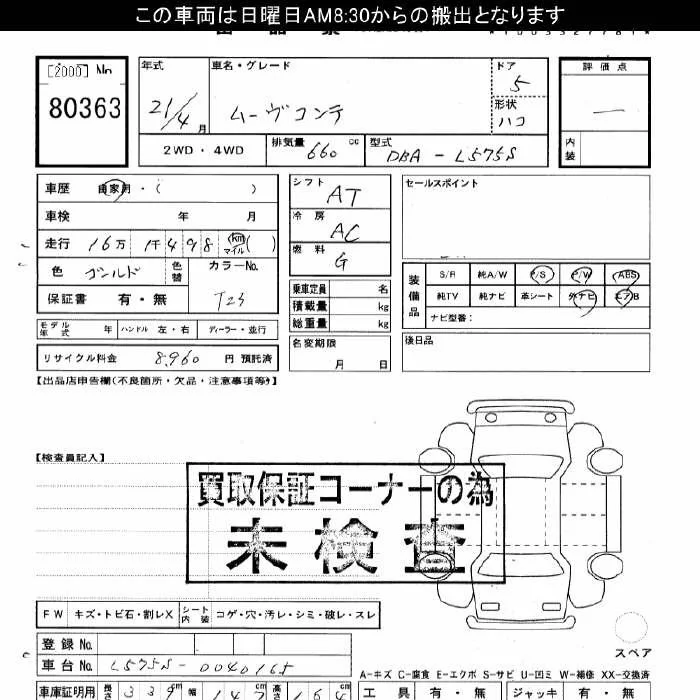 この車両は日曜日AM8:30からの搬出となります
[2000] No
80363
年式 車名・グレード ドア 5 評価点
21/4月 ムーヴコンテ 形状 ハコ ー
2WD・4WD 排気量 660 cc 型式 DBA-L575S 内装
車歴 自家用・( )
車検 年 月
走行 16万 1千498 km マイル ( )
色 ゴールド 色替 カラーNo.
保証書 有・無 T23
シフト AT
冷房 AC
燃料 G
セールスポイント
乗車定員 名
積載量 kg
総重量 kg
装備品 S/R 純A/W P/S P/W ABS
純TV 純ナビ 革シート 外ナビ エアB
ナビ型番:
モデル年式 年 ハンドル 左・右 ディーラー・並行
名変期限 月 日
後日品
リサイクル料金 8,960 円 預託済
【出品店申告欄(不良箇所・欠品・注意事項等)】
【検査員記入】
買取保証コーナーの為
未検査
FW キズ・トビ石・割レX シート内装 コゲ・穴・汚レ・シミ・破レ・スレ
登録No.
車台No. L575S-0040165
スペア
A-キズ C-腐食 E-エクボ S-サビ U-凹ミ W-補修 XX-交換済
車庫証明用 長さ 339 幅 147 高さ 164
工具 有・無 ジャッキ 有・無